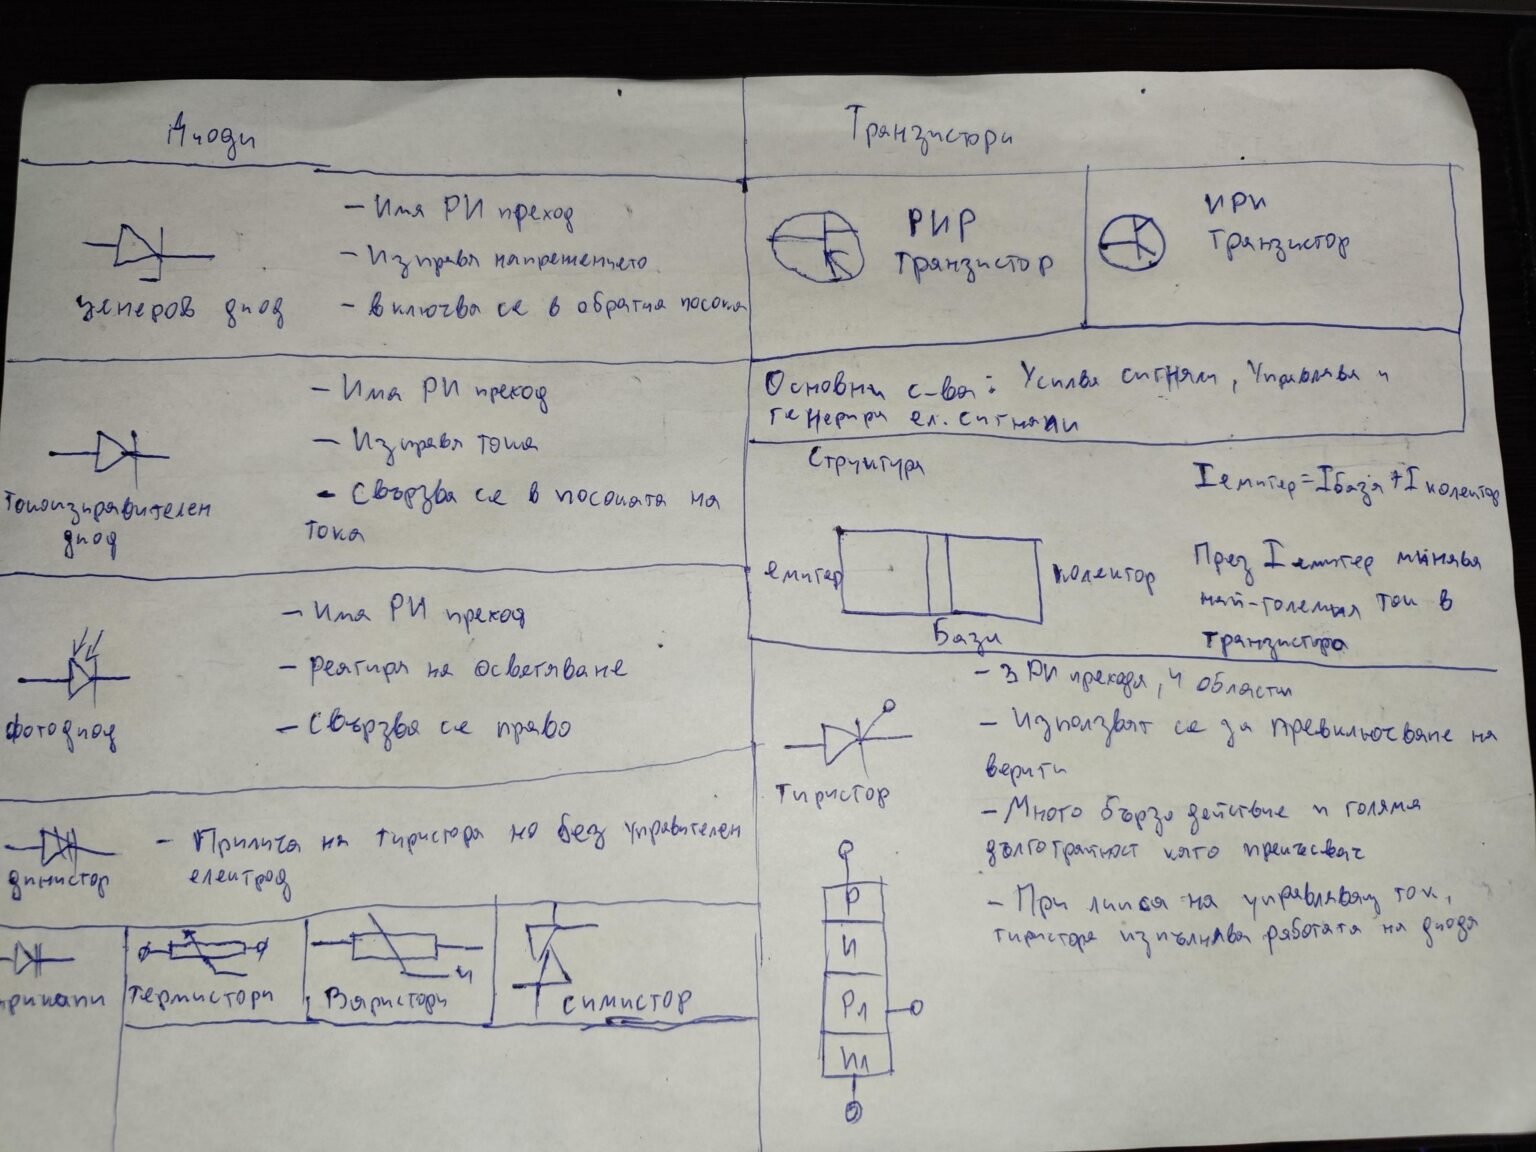 Диоди
- Има РИ преход
- Изправя напрежението
- включва се в обратна посока
ценеров диод
- Има РИ преход
- Изправя тока
- Свързва се в посоката на
тока
Токоизправителен
диод
- Има РИ преход
- реагира на осветяване
- Свързва се право
фотодиод
- Прилича на тиристора но без управителен
електрод
динистор
термистори
Варистори
симистор
Транзистори
РИР
транзистор
ИРИ
транзистор
Основни с-ва: Усилва сигнали, Управлява и
генерира ел. сигнали
Структура
I емитер = I база + I колектор
емитер
колектор
Бази
През I емитер минава
най-големия ток в
транзистора
- 3 РИ прехода, 4 области
- Използват се за превключване на
вериги
тиристор
- Много бързо действие и голяма
дълготрайност като прекъсвач
- При липса на управляващ ток,
тиристора изпълнява работата на диода
Р
И
Рл
Ил